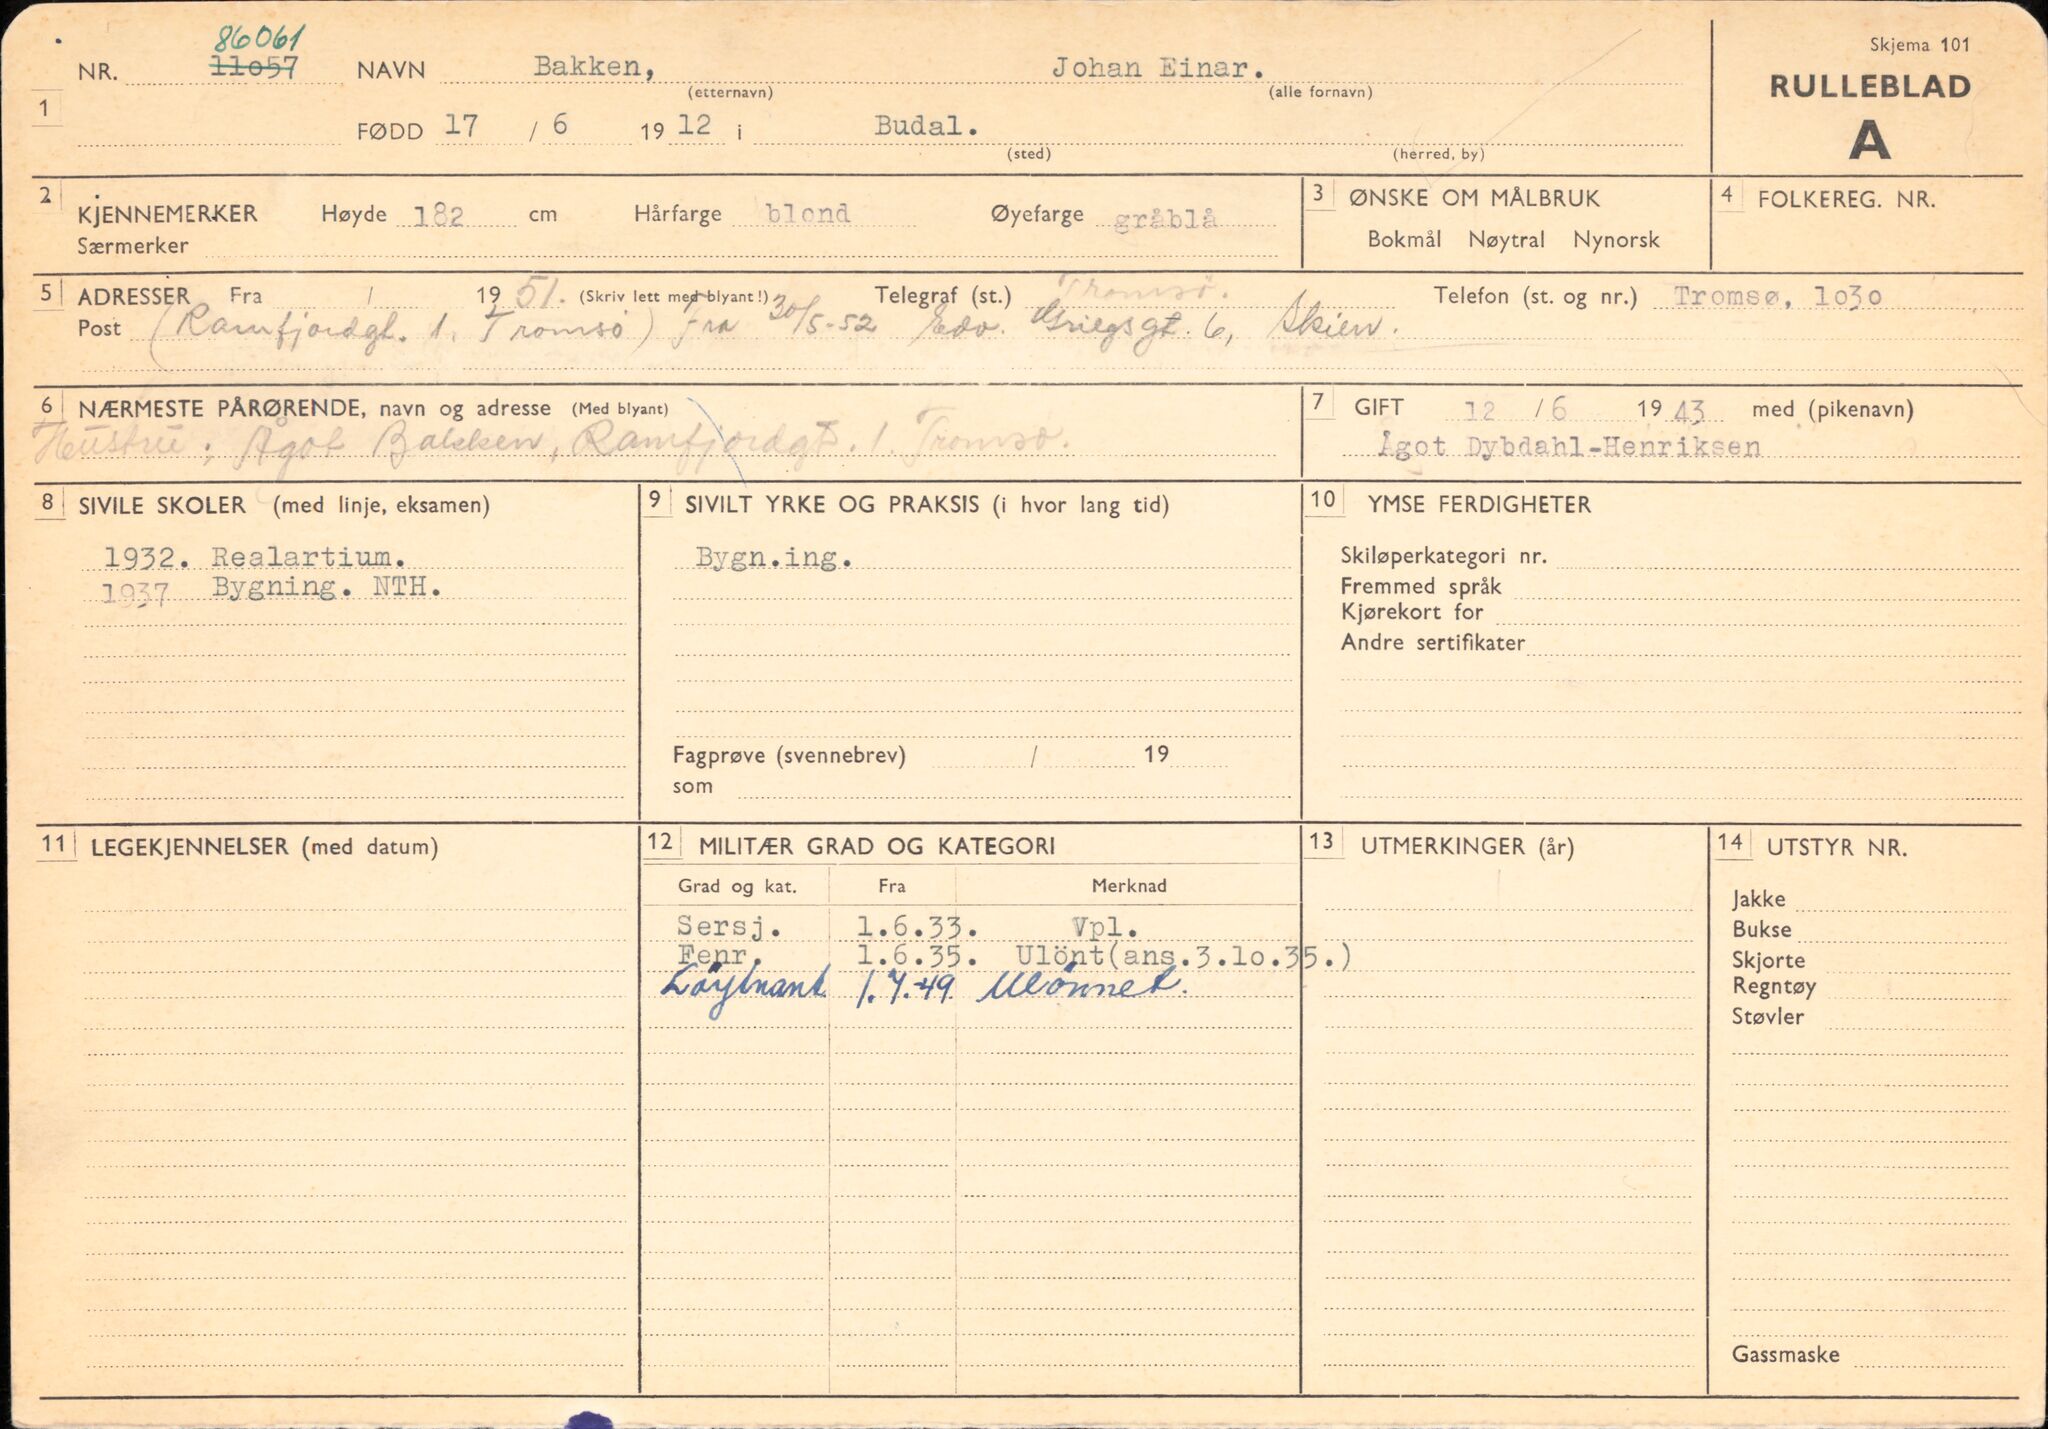 86061
Skjema 101
NR. 11o57 NAVN Bakken, Johan Einar.
(etternavn) (alle fornavn)
RULLEBLAD
A
1
FØDD 17 / 6 1912 i Budal.
(sted) (herred, by)
2 KJENNEMERKER Høyde 182 cm Hårfarge blond Øyefarge gråblå
Særmerker
3 ØNSKE OM MÅLBRUK
Bokmål Nøytral Nynorsk
4 FOLKEREG. NR.
5 ADRESSER Fra / 19 51. (Skriv lett med blyant!) Telegraf (st.) Tromsø. Telefon (st. og nr.) Tromsø, 1o3o
Post (Ramfjordgt. 1. Tromsø) Fra 30/5-52 Edv. Griegsgt. 6, Skien.
6 NÆRMESTE PÅRØRENDE, navn og adresse (Med blyant)
Hustru: Ågot Bakken, Ramfjordgt. 1. Tromsø.
7 GIFT 12 / 6 1943 med (pikenavn)
Ågot Dybdahl-Henriksen
8 SIVILE SKOLER (med linje, eksamen)
1932. Realartium.
1937 Bygning. NTH.
9 SIVILT YRKE OG PRAKSIS (i hvor lang tid)
Bygn.ing.
Fagprøve (svennebrev) / 19
som
10 YMSE FERDIGHETER
Skiløperkategori nr.
Fremmed språk
Kjørekort for
Andre sertifikater
11 LEGEKJENNELSER (med datum)
12 MILITÆR GRAD OG KATEGORI
Grad og kat. Fra Merknad
Sersj. 1.6.33. Vpl.
Fenr. 1.6.35. Ulönt(ans.3.1o.35.)
Löytnant 1.7.49. Ulönnet.
13 UTMERKINGER (år)
14 UTSTYR NR.
Jakke
Bukse
Skjorte
Regntøy
Støvler
Gassmaske